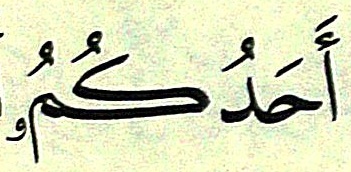 أَحَدُكُمُۥ